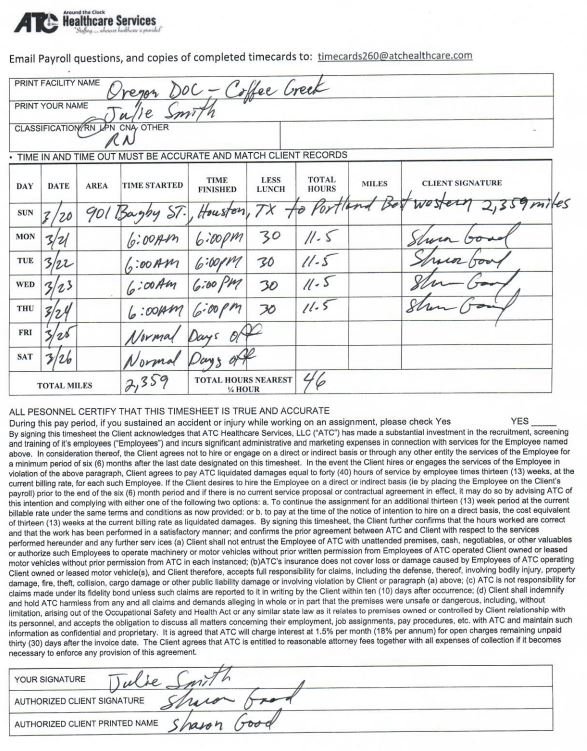 Around the Clock
ATC Healthcare Services
"Staffing... wherever healthcare is provided"
Email Payroll questions, and copies of completed timecards to: timecards260@atchealthcare.com
PRINT FACILITY NAME Oregon DOC - Coffee Creek
PRINT YOUR NAME Julie Smith
CLASSIFICATION/RN LPN CNA OTHER
RN
• TIME IN AND TIME OUT MUST BE ACCURATE AND MATCH CLIENT RECORDS
DAY DATE AREA TIME STARTED TIME FINISHED LESS LUNCH TOTAL HOURS MILES CLIENT SIGNATURE
SUN 3/20 901 Bagby ST., Houston, TX to Portland Best western 2,359 miles
MON 3/21 6:00AM 6:00PM 30 11.5 Sharon Good
TUE 3/22 6:00AM 6:00PM 30 11.5 Sharon Good
WED 3/23 6:00AM 6:00PM 30 11.5 Sharon Good
THU 3/24 6:00AM 6:00PM 30 11.5 Sharon Good
FRI 3/25 Normal Days off
SAT 3/26 Normal Days off
TOTAL MILES 2,359 TOTAL HOURS NEAREST ¼ HOUR 46
ALL PESONNEL CERTIFY THAT THIS TIMESHEET IS TRUE AND ACCURATE
During this pay period, if you sustained an accident or injury while working on an assignment, please check Yes YES ____
By signing this timesheet the Client acknowledges that ATC Healthcare Services, LLC ("ATC") has made a substantial investment in the recruitment, screening
and training of it's employees ("Employees") and incurs significant administrative and marketing expenses in connection with services for the Employee named
above. In consideration thereof, the Client agrees not to hire or engage on a direct or indirect basis or through any other entity the services of the Employee for
a minimum period of six (6) months after the last date designated on this timesheet. In the event the Client hires or engages the services of the Employee in
violation of the above paragraph, Client agrees to pay ATC liquidated damages equal to forty (40) hours of service by employee times thirteen (13) weeks, at the
current billing rate, for each such Employee. If the Client desires to hire the Employee on a direct or indirect basis (ie by placing the Employee on the Client's
payroll) prior to the end of the six (6) month period and if there is no current service proposal or contractual agreement in effect, it may do so by advising ATC of
this intention and complying with either one of the following two options: a. To continue the assignment for an additional thirteen (13) week period at the current
billable rate under the same terms and conditions as now provided: or b. to pay at the time of the notice of intention to hire on a direct basis, the cost equivalent
of thirteen (13) weeks at the current billing rate as liquidated damages. By signing this timesheet, the Client further confirms that the hours worked are correct
and that the work has been performed in a satisfactory manner; and confirms the prior agreement between ATC and Client with respect to the services
performed hereunder and any further services (a) Client shall not entrust the Employee of ATC with unattended premises, cash, negotiables, or other valuables
or authorize such Employees to operate machinery or motor vehicles without prior written permission from Employees of ATC operated Client owned or leased
motor vehicles without prior permission from ATC in each instance; (b)ATC's insurance does not cover loss or damage caused by Employees of ATC operating
Client owned or leased motor vehicle(s), and Client therefore, accepts full responsibility for claims, including the defense, thereof, involving bodily injury, property
damage, fire, theft, collision, cargo damage or other public liability damage or involving violation by Client or paragraph (a) above; (c) ATC is not responsibility for
claims made under its fidelity bond unless such claims are reported to it in writing by the Client within ten (10) days after occurrence; (d) Client shall indemnify
and hold ATC harmless from any and all claims and demands alleging in whole or in part that the premises were unsafe or dangerous, including, without
limitation, arising out of the Occupational Safety and Health Act or any similar state law as it relates to premises owned or controlled by Client relationship with
its personnel, and accepts the obligation to discuss all matters concerning their employment, job assignments, pay procedures, etc. with ATC and maintain such
information as confidential and proprietary. It is agreed that ATC will charge interest at 1.5% per month (18% per annum) for open charges remaining unpaid
thirty (30) days after the invoice date. The Client agrees that ATC is entitled to reasonable attorney fees together with all expenses of collection if it becomes
necessary to enforce any provision of this agreement.
YOUR SIGNATURE Julie Smith
AUTHORIZED CLIENT SIGNATURE Sharon Good
AUTHORIZED CLIENT PRINTED NAME Sharon Good